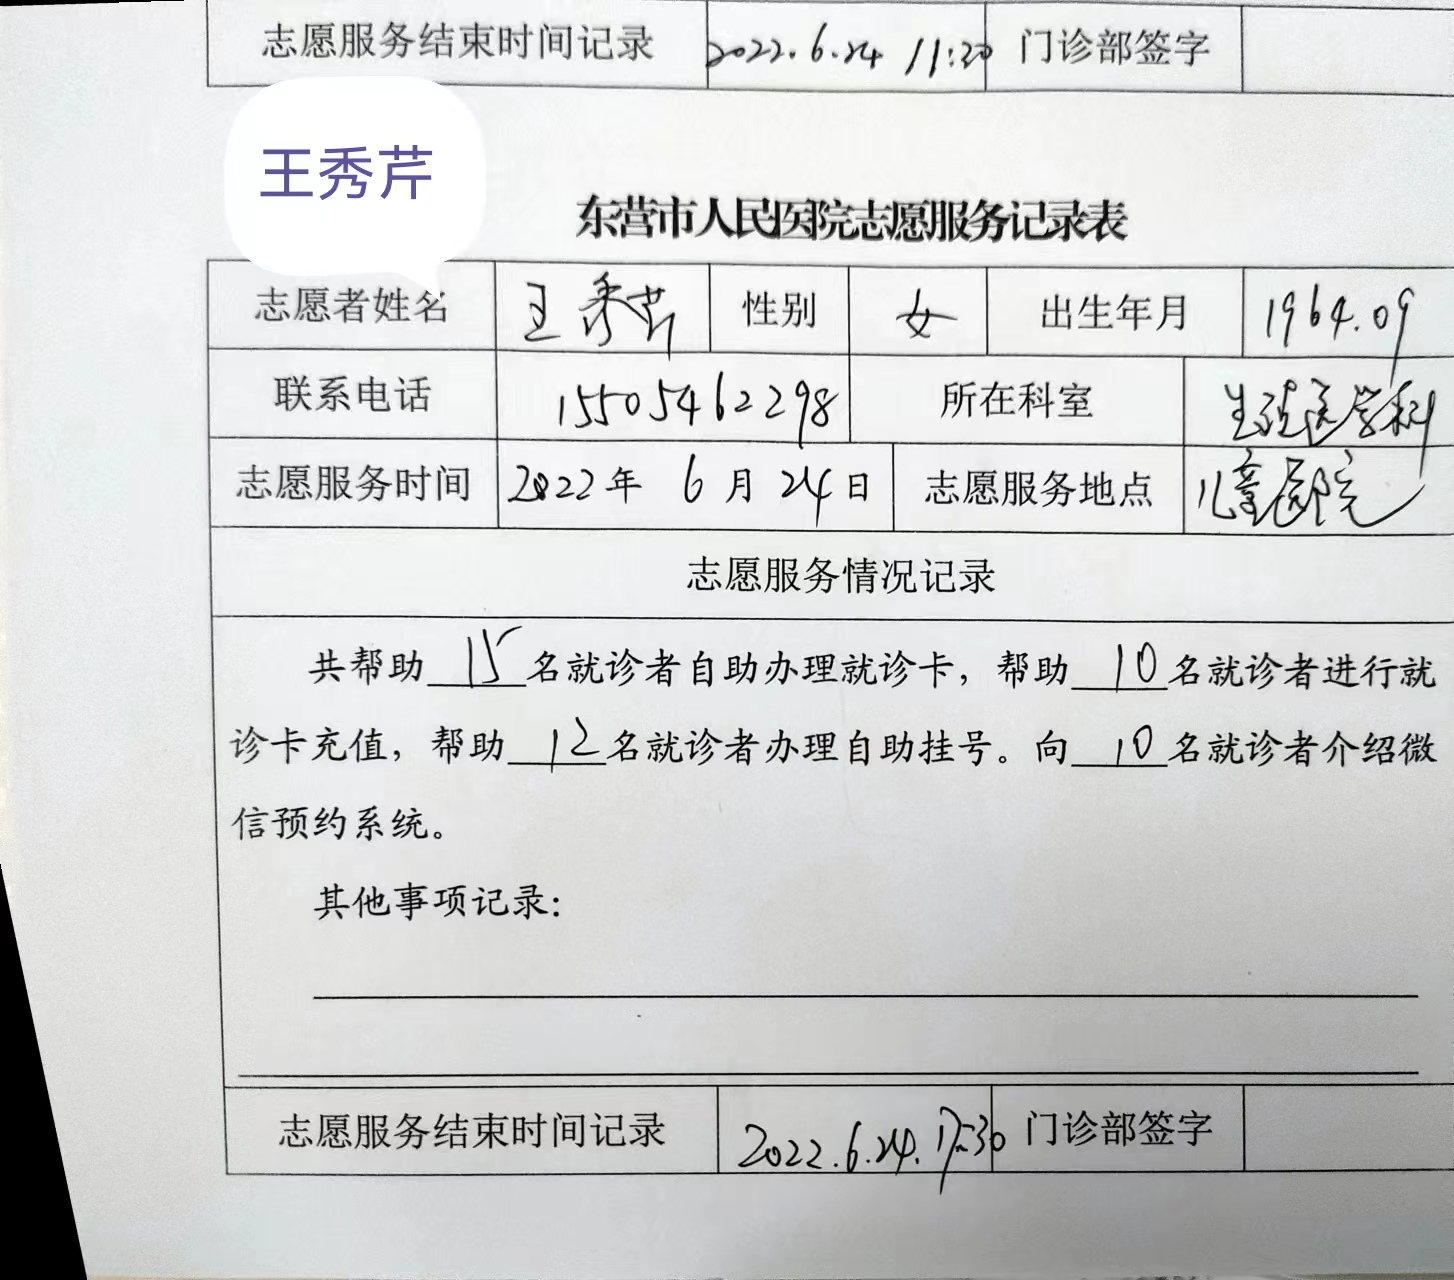 志愿服务结束时间记录 2022.6.24 11:30 门诊部签字
王秀芹
东营市人民医院志愿服务记录表
志愿者姓名 王秀芹 性别 女 出生年月 1964.09
联系电话 15505462298 所在科室 生殖医学科
志愿服务时间 2022年 6月 24日 志愿服务地点 儿童医院
志愿服务情况记录
共帮助 15 名就诊者自助办理就诊卡，帮助 10 名就诊者进行就
诊卡充值，帮助 12 名就诊者办理自助挂号。向 10 名就诊者介绍微
信预约系统。
其他事项记录：
志愿服务结束时间记录 2022.6.24. 17:30 门诊部签字